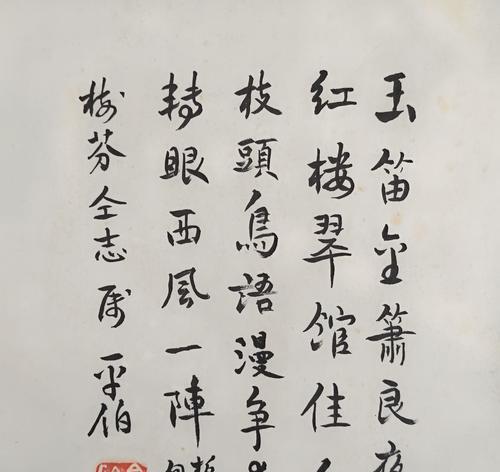 玉笛金簫良夜
红楼翠馆佳
枝頭鳥語漫争
轉眼西風一陣
樹芬仝志属 平伯